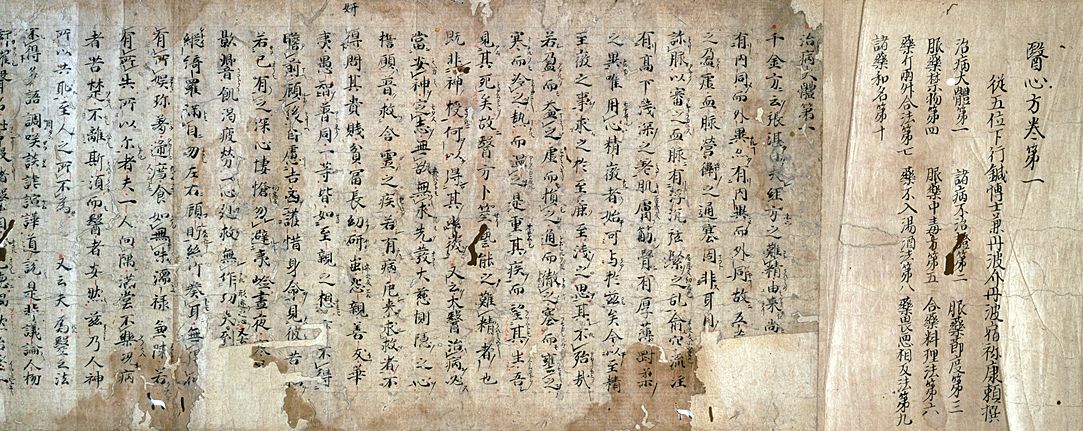 醫心方巻第一
從五位下行鍼博士兼丹波介丹波宿祢康頼撰
治病大體第一 諸病不治證第二 服藥節度第三
服藥禁物第四 服藥中毒方第五 合藥料理法第六
藥斤兩升合法第七 藥不入湯酒法第八 藥畏惡相反法第九
諸藥和名第十
治病大體第一
千金方云張湛曰夫經方之難精由來尚
有内同而外異亦有内異而外同故五
之盈虛血脈營衛之通塞固非耳目
診脈以審之而脈有浮沉弦緊之乱俞穴流注
有高下淺深之差肌膚筋骨有厚薄剛柔
之異唯用心精微者始可与於茲矣今以至精
至微之事求之於至麤至淺之思其不殆哉
若盈而益之虛而損之通而徹之塞而壅之
寒而冷之熱而温之是重其疾而望其生吾
見其死矣故醫方卜筮藝能之難精者也
既非神授何以得其幽微 又云大醫治病必
當安神定志無欲無求先發大慈惻隱之心
誓願普救含靈之疾若有病厄來求救者不
得問其貴賤貧冨長幼妍蚩怨親善友華
夷愚智普同一等皆如至親之想 不得
瞻前顧後自慮吉凶護惜身命見彼苦
若己有之深心悽愴勿避夷嶮晝夜
飢渴疲勞一心赴救無作功夫
綺羅滿目勿左右顧眄絲竹湊耳無得
有所娯珍羞迭薦食如無味醽醁兼陳若
有所共所以尓者夫一人向隅滿堂不樂況病
者苦楚不離斯須而醫者安然 茲乃人神
所以共恥至人之所不為 又云夫為醫之法
不得多語調咲談謔諠譁道說是非議論人物
妍